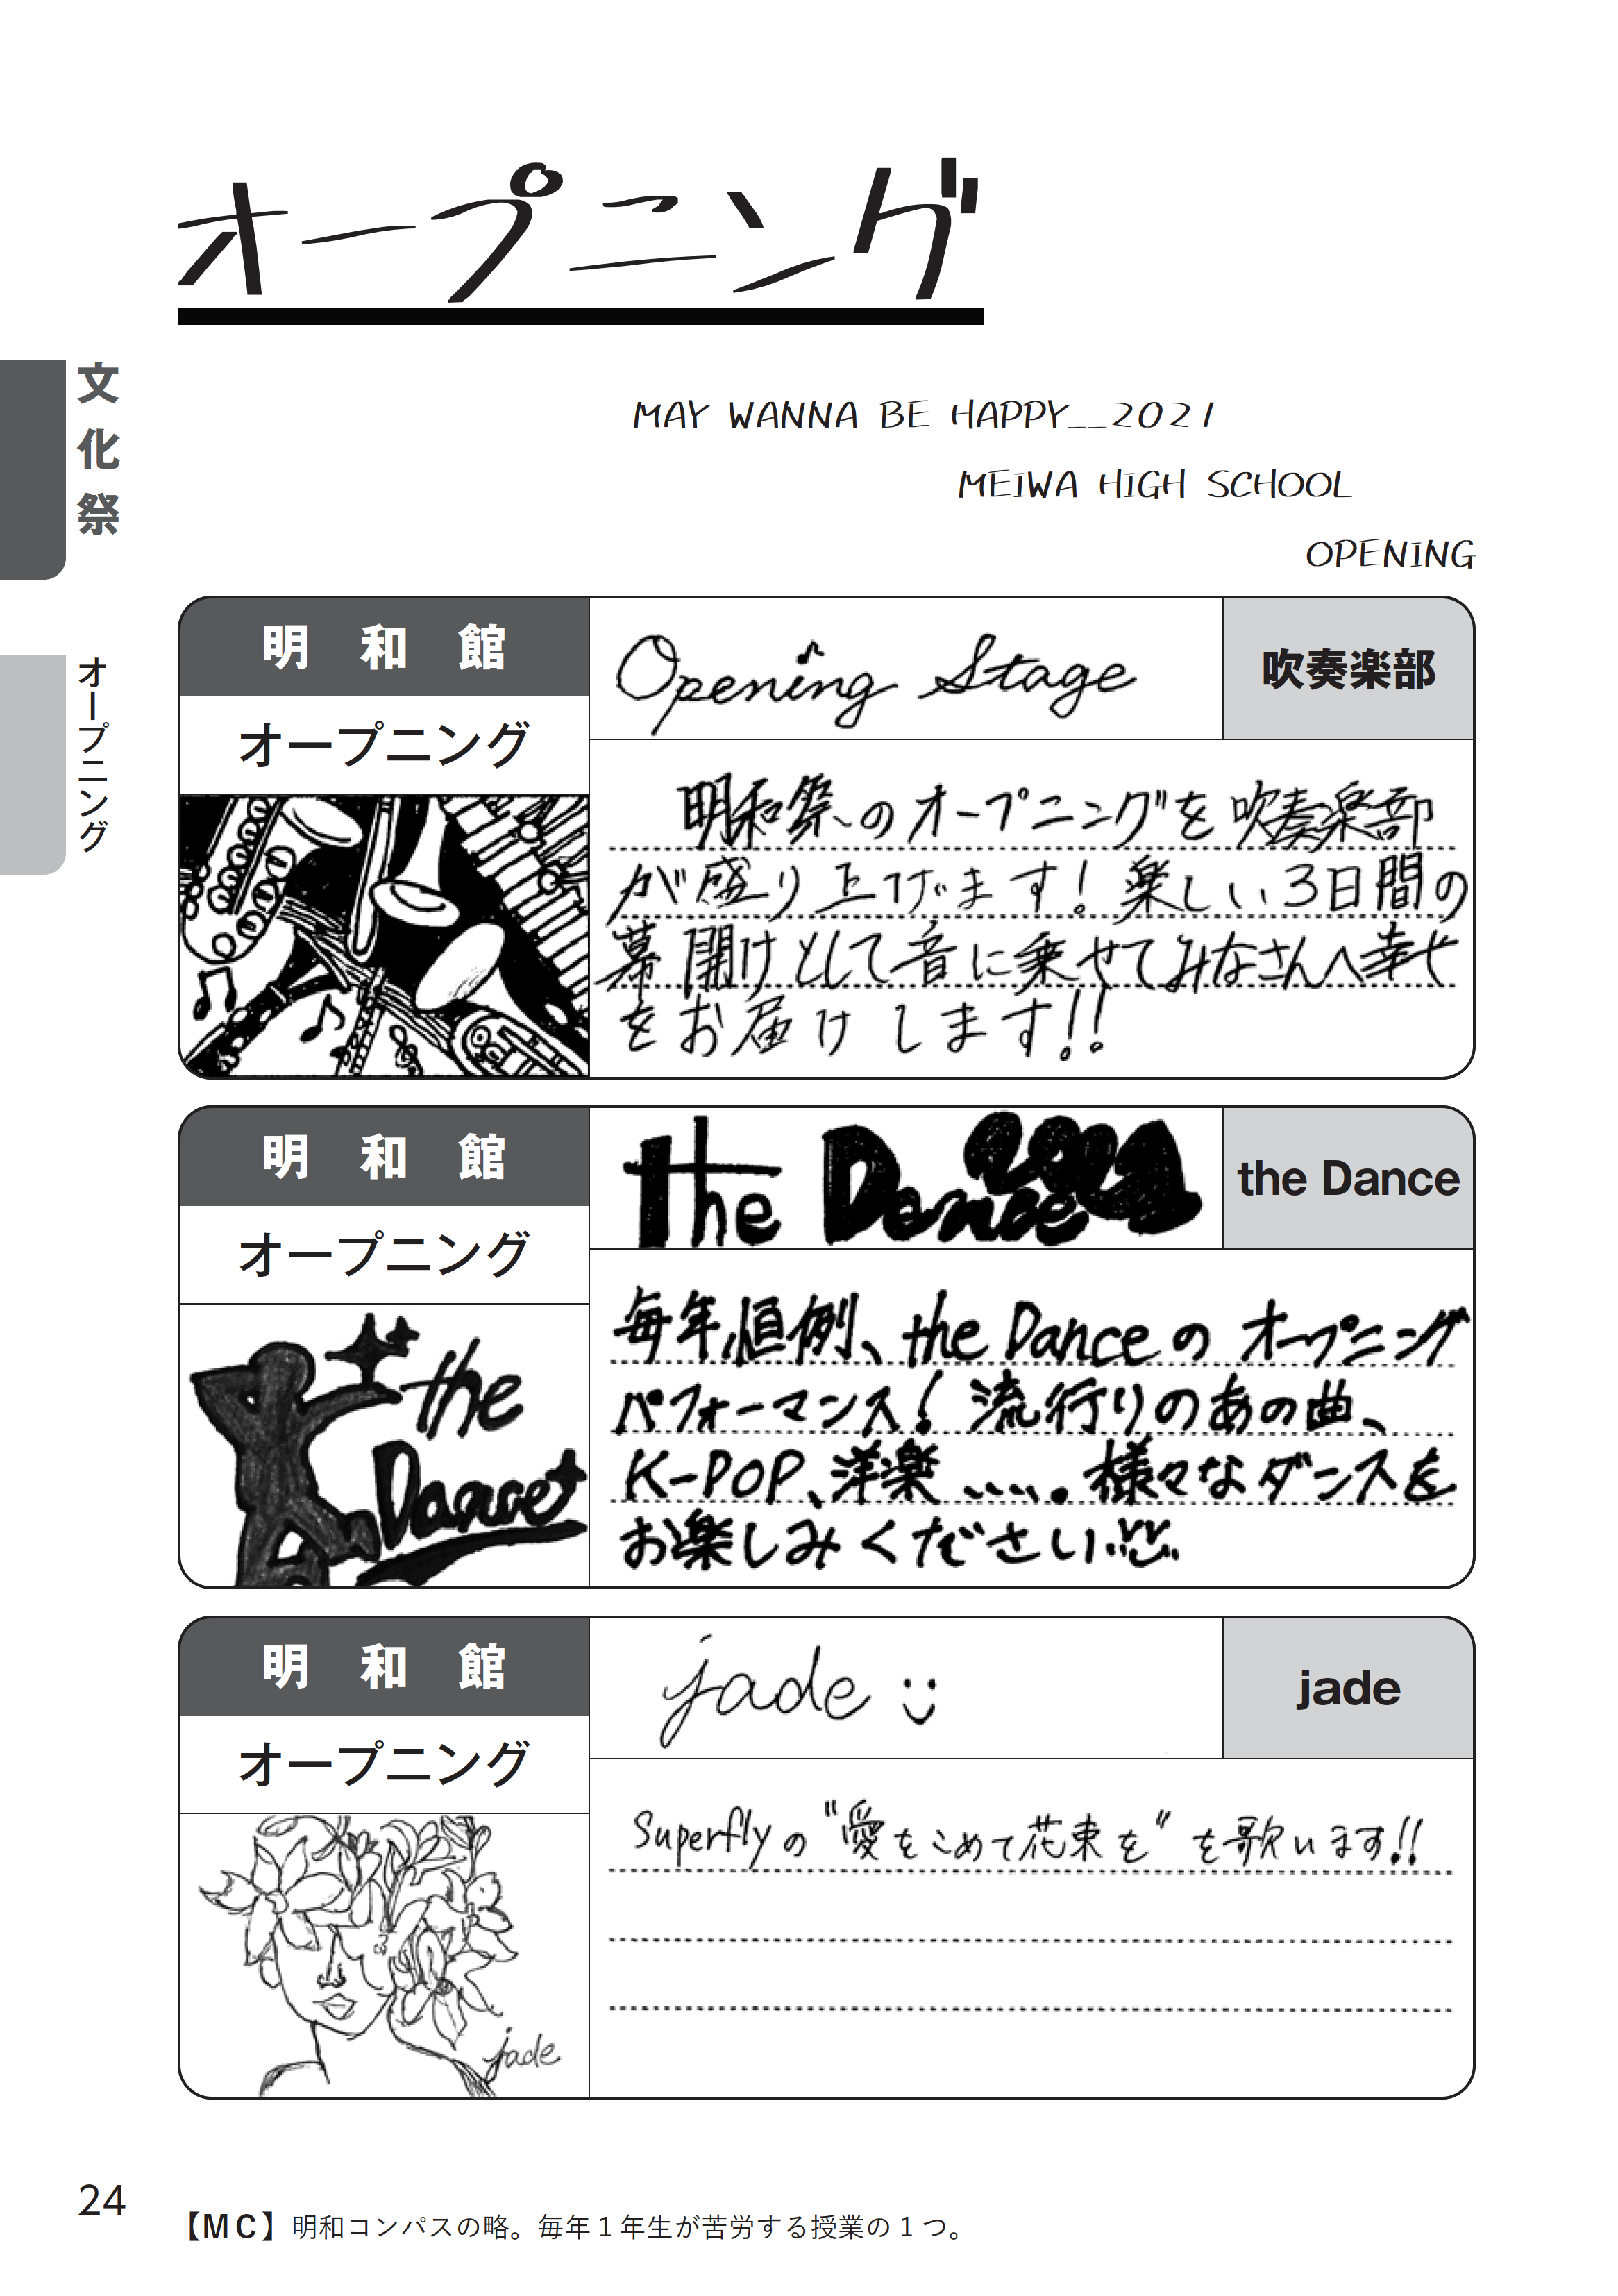 オープニング
文化祭
オープニング
MAY WANNA BE HAPPY__2021
MEIWA HIGH SCHOOL
OPENING
明和館
オープニング
Opening Stage
吹奏楽部
明和祭のオープニングを吹奏楽部
が盛り上げます！楽しい3日間の
幕開けとして音に乗せてみなさんへ幸せ
をお届けします!!
明和館
オープニング
the Dance 2021
the Dance
the
Dance
毎年恒例、the Danceのオープニング
パフォーマンス！流行りのあの曲、
K-POP、洋楽……。様々なダンスを
お楽しみください
明和館
オープニング
jade
jade
jade
Superflyの"愛をこめて花束を"を歌います!!
24
【MC】明和コンパスの略。毎年1年生が苦労する授業の1つ。